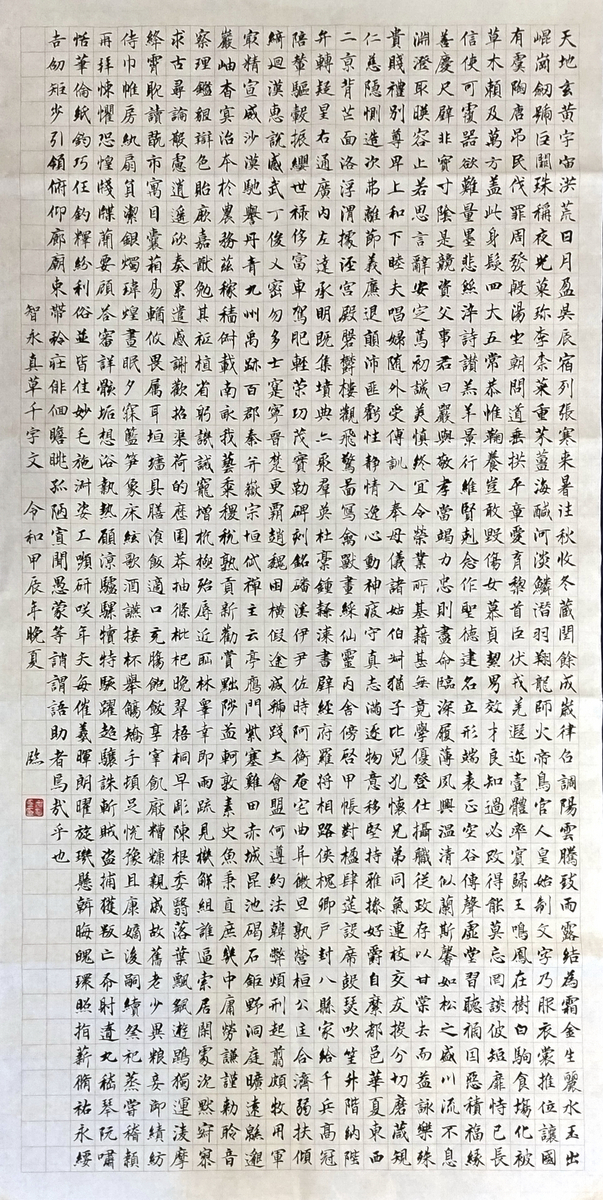 天地玄黃宇宙洪荒日月盈昃辰宿列張寒来暑往秋收冬蔵閏餘成歲律召調陽雲騰致雨露結為霜金生麗水玉出
崐崗劒號巨闕珠稱夜光菓珍李柰菜重芥薑海醎河淡鱗潜羽翔龍師火帝鳥官人皇始制文字乃服衣裳推位讓國
有虞陶唐弔民伐罪周發殷湯坐朝問道垂拱平章愛育黎首臣伏戎羌遐迩壹體率賓歸王鳴鳳在樹白駒食場化被
草木賴及萬方盖此身髮四大五常恭惟鞠養豈敢毀傷女慕貞絜男效才良知過必改得能莫忘罔談彼短靡恃己長
信使可覆器欲難量墨悲絲淬詩讃羔羊景行維賢剋念作聖德建名立形端表正空谷傳聲虛堂習聽禍因惡積福緣
善慶尺璧非寶寸陰是競資父事君曰嚴與敬孝當竭力忠則盡命臨深履薄夙興溫清似蘭斯馨如松之盛川流不息
淵澄取暎容止若思言辭安定篤初誠美慎終宜令榮業所基藉甚無竟學優登仕攝職從政存以甘棠去而益詠樂殊
貴賤禮別尊卑上和下睦夫唱婦隨外受傅訓入奉母儀諸姑伯叔猶子比兒孔懷兄弟同氣連枝交友投分切磨箴規
仁慈隱惻造次弗離節義廉退顛沛匪虧性靜情逸心動神疲守真志滿逐物意移堅持雅操好爵自縻都邑華夏東西
二京背芒面洛浮渭據涇宮殿磐欝樓觀飛驚圖寫禽獸畫綵仙靈丙舍傍啓甲帳對楹肆莚設席鼓瑟吹笙升階納陛
弁轉疑星右通廣內左達承明既集墳典亦聚羣英杜稾鍾隸漆書壁經府羅將相路俠槐卿戶封八縣家給千兵高冠
陪輦驅轂振纓世禄侈富車駕肥輕策功茂實勒碑刻銘磻溪伊尹佐時阿衡奄宅曲阜微旦孰營桓公匡合濟弱扶傾
綺迴漢惠說感武丁俊乂密勿多士寔寧晉楚更霸趙魏困橫假途滅虢踐土會盟何遵約法韓弊煩刑起翦頗牧用軍
冣精宣威沙漠馳譽丹青九州禹跡百郡秦并嶽宗恒岱禪主云亭鴈門紫塞雞田赤城昆池碣石鉅野洞庭曠遠緜邈
巖岫杳冥治本於農務茲稼穡俶載南畝我藝黍稷稅熟貢新勸賞黜陟孟軻敦素史魚秉直庶幾中庸勞謙謹勑聆音
察理鑒貌辯色貽厥嘉猷勉其祗植省躬譏誡寵增抗極殆辱近恥林睾幸即兩疏見機解組誰逼索居閑處沈默寂寥
求古尋論散慮逍遥欣奏累遣慼謝歡招渠荷的歷園莽抽條枇杷晚翠梧桐早彫陳根委翳落葉飄颻遊鵾獨運淩摩
絳霄耽讀翫市寓目囊箱易輶攸畏屬耳垣墻具膳湌飯適口充腸飽飫享宰飢厭糟糠親戚故舊老少異粮妾御績紡
侍巾帷房紈扇員潔銀燭煒煌晝眠夕寐藍笋象床絃歌酒讌接杯舉觴矯手頓足悅豫且康嫡後嗣續祭祀蒸嘗稽顙
再拜悚懼恐惶牋牒簡要顧答審詳骸垢想浴執熱願涼驢騾犢特駭躍超驤誅斬賊盜捕獲叛亡布射遼丸嵇琴阮嘯
恬筆倫紙鈞巧任釣釋紛利俗並皆佳妙毛施淑姿工嚬研咲年矢每催羲暉朗曜旋璣懸斡晦魄環照指薪脩祜永綏
吉劭矩步引領俯仰廊廟束帶矜莊俳佪瞻眺孤陋寡聞愚蒙等誚謂語助者焉哉乎也
智永真草千字文 令和甲辰年晚夏 臨